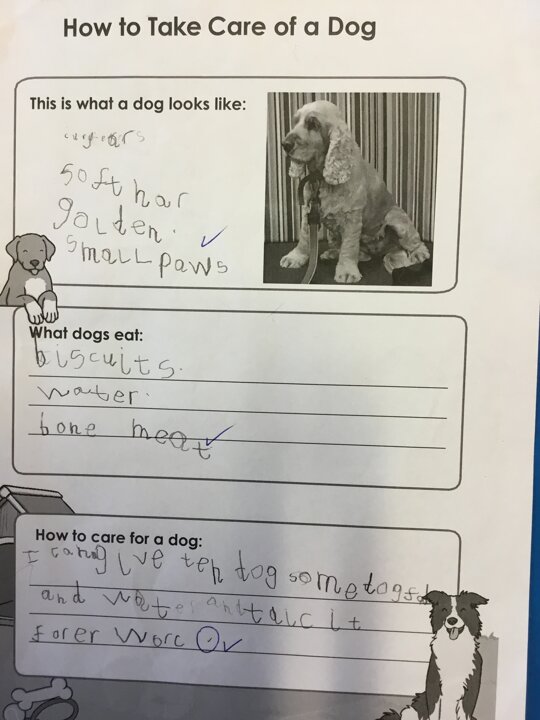 How to Take Care of a Dog
This is what a dog looks like:
soft har
golden.
small paws
What dogs eat:
biscuits.
water.
bone meat
How to care for a dog:
I can give teh dog some dogfd
and water and talc it
forer worc